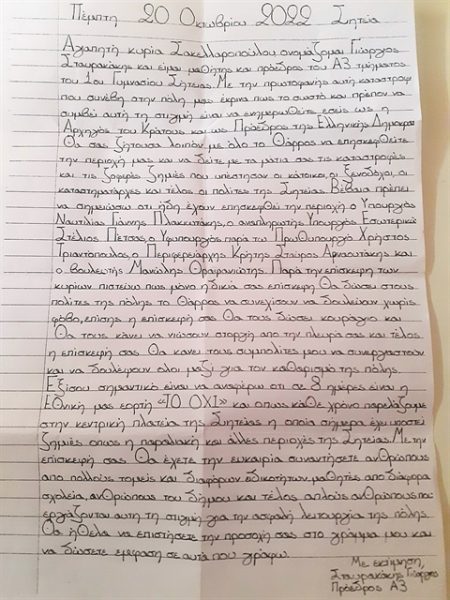 Πέμπτη 20 Οκτωβρίου 2022 Σητεία
Αγαπητή κυρία Σακελλαροπούλου ονομάζομαι Γιώργος
Σταυρακάκης και είμαι μαθητής και πρόεδρος του Α3 τμήματος
του 1ου Γυμνασίου Σητείας. Με την πρωτοφανής αυτή καταστροφή
που συνέβη στην πόλη μας έκρινα πως το σωστό και πρέπον να
συμβεί αυτή τη στιγμή είναι να ενημερωθείτε εσείς ως η
Αρχηγός του Κράτους και ως Πρόεδρος της Ελληνικής Δημοκρατ
Θα σας ζητούσα λοιπόν με όλο το θάρρος να επισκεφθείτε
την περιοχή μας και να δείτε με τα ματια σας τις καταστροφές
και τις ζοφερές ζημιές που υπέστησαν οι κάτοικοι, οι ξενοδόχοι, οι
καταστηματάρχες και τέλος οι πολίτες της Σητείας. Βέβαια πρέπει
να σημειώσω ότι ήδη έχουν επισκεφθεί την περιοχή ο Υπουργός
Ναυτιλίας Γιάννης Πλακιωτάκης, ο αναπληρωτής Υπουργός Εσωτερικών
Στέλιος Πέτσας, ο Υφυπουργός παρά τω Πρωθυπουργό Χρήστος
Τριαντόπουλος, ο Περιφερειάρχης Κρήτης Σταύρος Αρναουτάκης και
ο βουλευτής Μανώλης Θραψανιώτης. Παρά την επίσκεψη των
κυρίων πιστεύω πως μόνο η δικιά σας επίσκεψη θα δώσει στους
πολίτες της πόλης το θάρρος να συνεχίσουν να δουλεύουν χωρίς
φόβο, επίσης η επίσκεψή σας θα τους δώσει κουράγιο και
θα τους κάνει να νιώσουν στοργή απο την πλευρά σας και τέλος
η επίσκεψή σας θα κανει τους συμπολίτες μου να συνεργαστούν
και να δουλέψουν όλοι μαζί για τον καθαρισμό της πόλης.
Εξίσου σημαντικό είναι να αναφέρω ότι σε 8 ημέρες είναι η
Εθνική μας εορτή «ΤΟ ΟΧΙ» και οπως κάθε χρόνο παρελάζουμε
στην κεντρική πλατεία της Σητείας η οποία σήμερα έχει υποστεί
ζημιές οπως η παραλιακή και άλλες περιοχές της Σητείας. Με την
επίσκεψή σας θα έχετε την ευκαιρία συναντήσετε ανθρώπους
από πολλούς τομείς και διαφόρων ειδικοτήτων, μαθητες από διάφορα
σχολεία, ανθρώπους του δήμου και τέλος απλούς ανθρώπους που
εργάζονται αυτη τη στιγμή για την ασφαλή λειτουργία της πόλης.
Θα ήθελα να επιστήσετε την προσοχή σας στο γράμμα μου και
να δώσετε εμφαση σε αυτά που γράφω.
Με εκτίμηση,
Σταυρακάκης Γιώργος
Πρόεδρος Α3